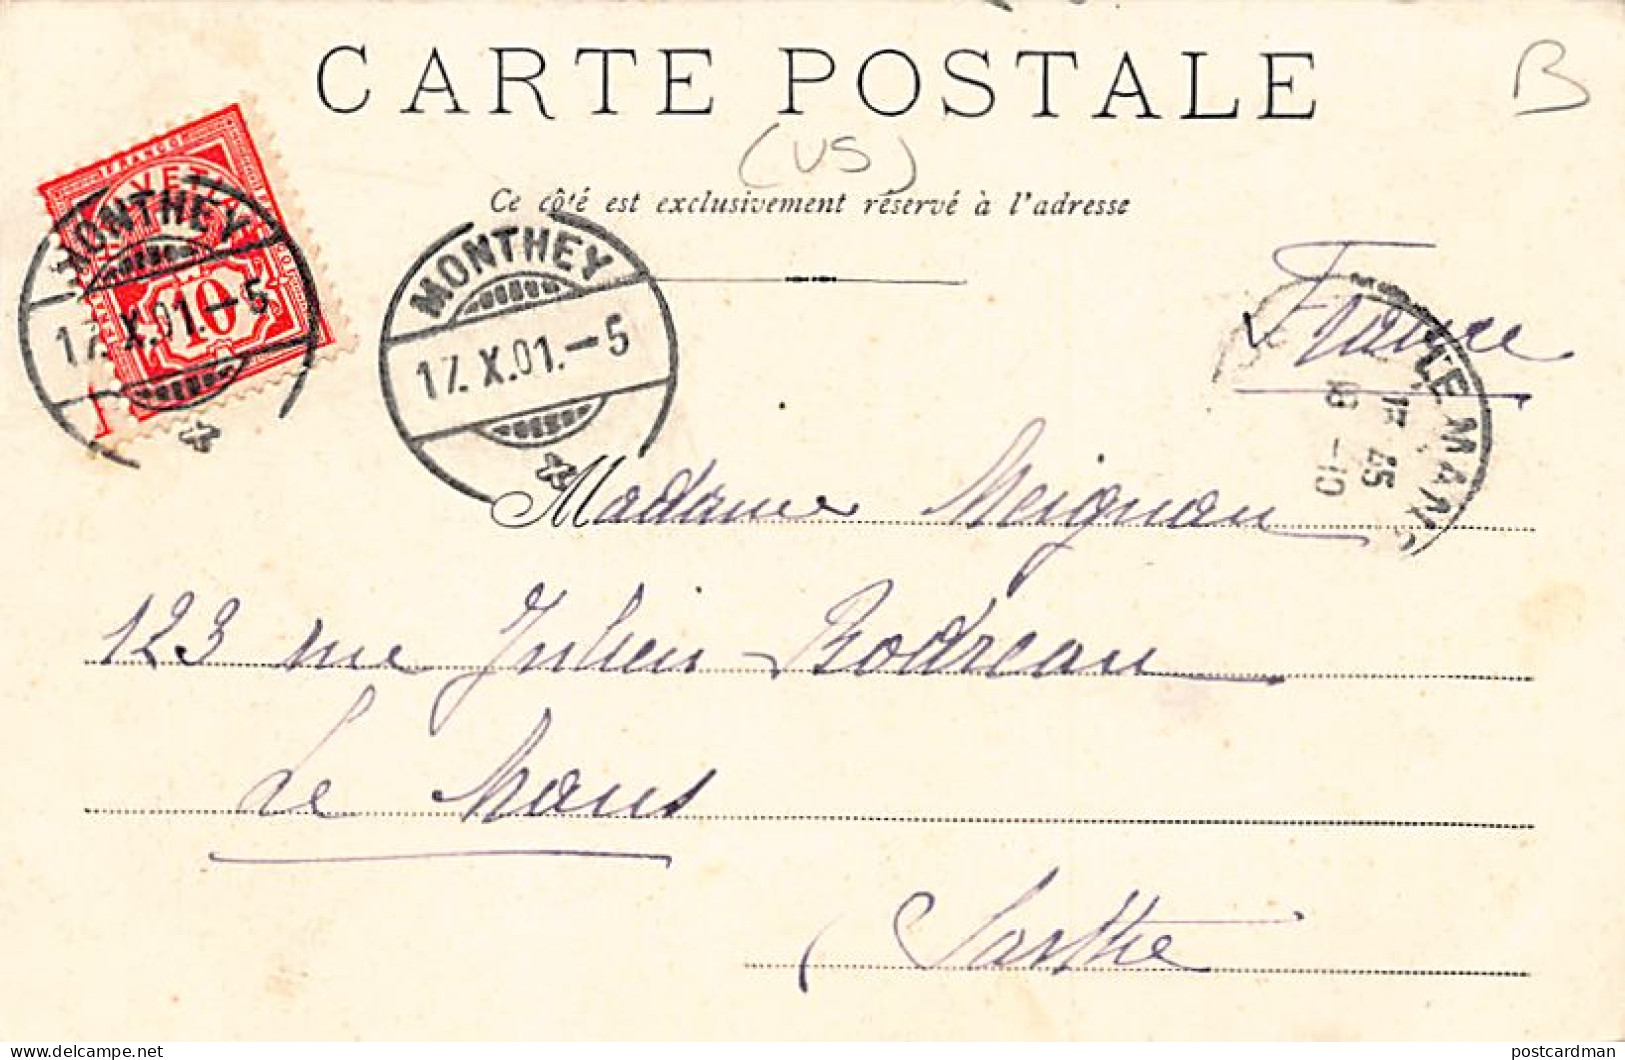 CARTE POSTALE
B
(US)
Ce côté est exclusivement réservé à l'adresse
FRANCO
HELVETIA
10
MONTHEY
17.X.01.–5
MONTHEY
17.X.01.–5
France
LE MANS
18 –10
Madame Meignan
123 rue Julien Bodreau
Le Mans
Sarthe
postcardman